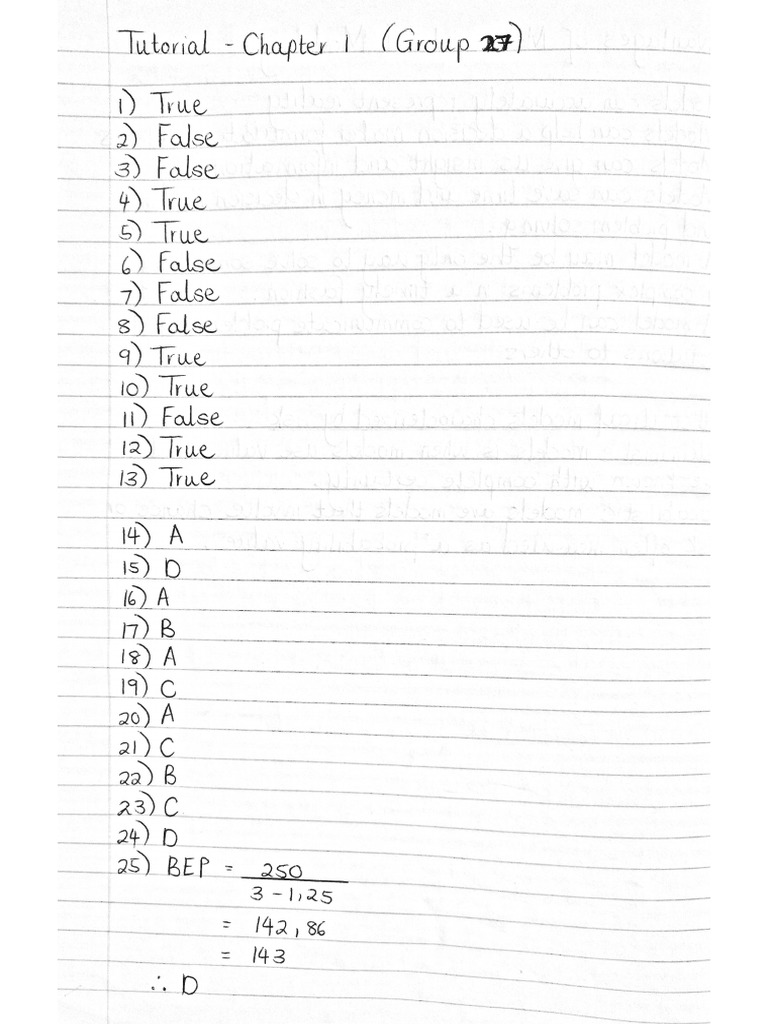 Tutorial - Chapter 1 (Group 27)
1) True
2) False
3) False
4) True
5) True
6) False
7) False
8) False
9) True
10) True
11) False
12) True
13) True
14) A
15) D
16) A
17) B
18) A
19) C
20) A
21) C
22) B
23) C
24) D
25) BEP = 250
3 - 1,25
= 142,86
= 143
∴ D